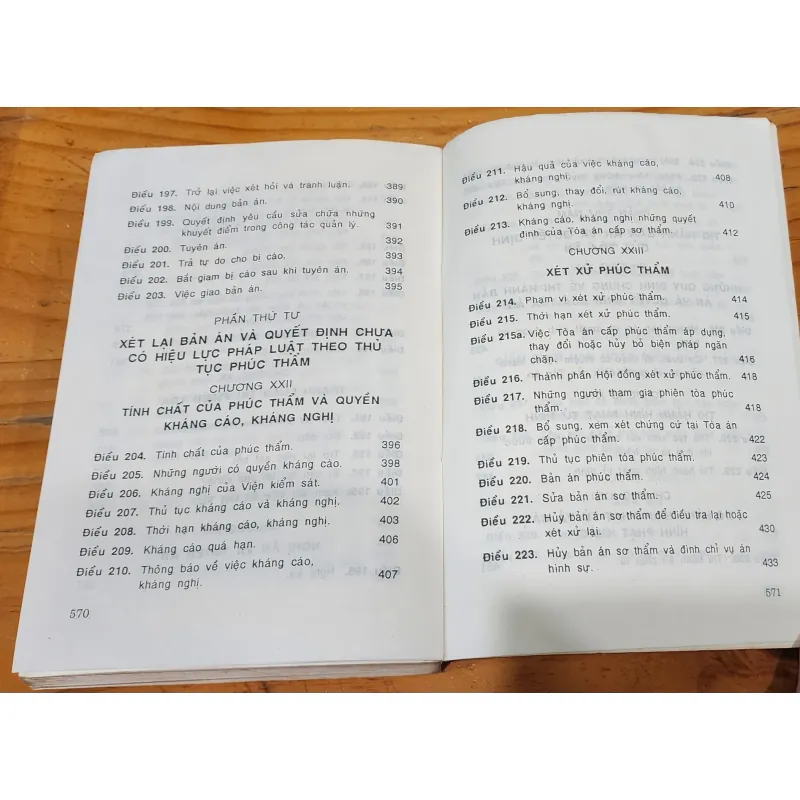 Điều 197. Trở lại việc xét hỏi và tranh luận. 389
Điều 198. Nội dung bản án. 390
Điều 199. Quyết định yêu cầu sửa chữa những
khuyết điểm trong công tác quản lý. 391
Điều 200. Tuyên án. 392
Điều 201. Trả tự do cho bị cáo. 393
Điều 202. Bắt giam bị cáo sau khi tuyên án. 394
Điều 203. Việc giao bản án. 395
PHẦN THỨ TƯ
XÉT LẠI BẢN ÁN VÀ QUYẾT ĐỊNH CHƯA
CÓ HIỆU LỰC PHÁP LUẬT THEO THỦ
TỤC PHÚC THẨM
CHƯƠNG XXII
TÍNH CHẤT CỦA PHÚC THẨM VÀ QUYỀN
KHÁNG CÁO, KHÁNG NGHỊ
Điều 204. Tính chất của phúc thẩm. 396
Điều 205. Những người có quyền kháng cáo. 398
Điều 206. Kháng nghị của Viện kiểm sát. 401
Điều 207. Thủ tục kháng cáo và kháng nghị. 402
Điều 208. Thời hạn kháng cáo, kháng nghị. 403
Điều 209. Kháng cáo quá hạn. 406
Điều 210. Thông báo về việc kháng cáo,
kháng nghị. 407
570
Điều 211. Hậu quả của việc kháng cáo,
kháng nghị. 408
Điều 212. Bổ sung, thay đổi, rút kháng cáo,
kháng nghị. 410
Điều 213. Kháng cáo, kháng nghị những quyết
định của Tòa án cấp sơ thẩm. 412
CHƯƠNG XXIII
XÉT XỬ PHÚC THẨM
Điều 214. Phạm vi xét xử phúc thẩm. 414
Điều 215. Thời hạn xét xử phúc thẩm. 415
Điều 215a. Việc Tòa án cấp phúc thẩm áp dụng,
thay đổi hoặc hủy bỏ biện pháp ngăn
chặn. 416
Điều 216. Thành phần Hội đồng xét xử phúc thẩm. 418
Điều 217. Những người tham gia phiên tòa phúc
thẩm. 418
Điều 218. Bổ sung, xem xét chứng cứ tại Tòa án
cấp phúc thẩm. 422
Điều 219. Thủ tục phiên tòa phúc thẩm. 423
Điều 220. Bản án phúc thẩm. 424
Điều 221. Sửa bản án sơ thẩm. 425
Điều 222. Hủy bản án sơ thẩm để điều tra lại hoặc
xét xử lại. 430
Điều 223. Hủy bản án sơ thẩm và đình chỉ vụ án
hình sự. 433
571